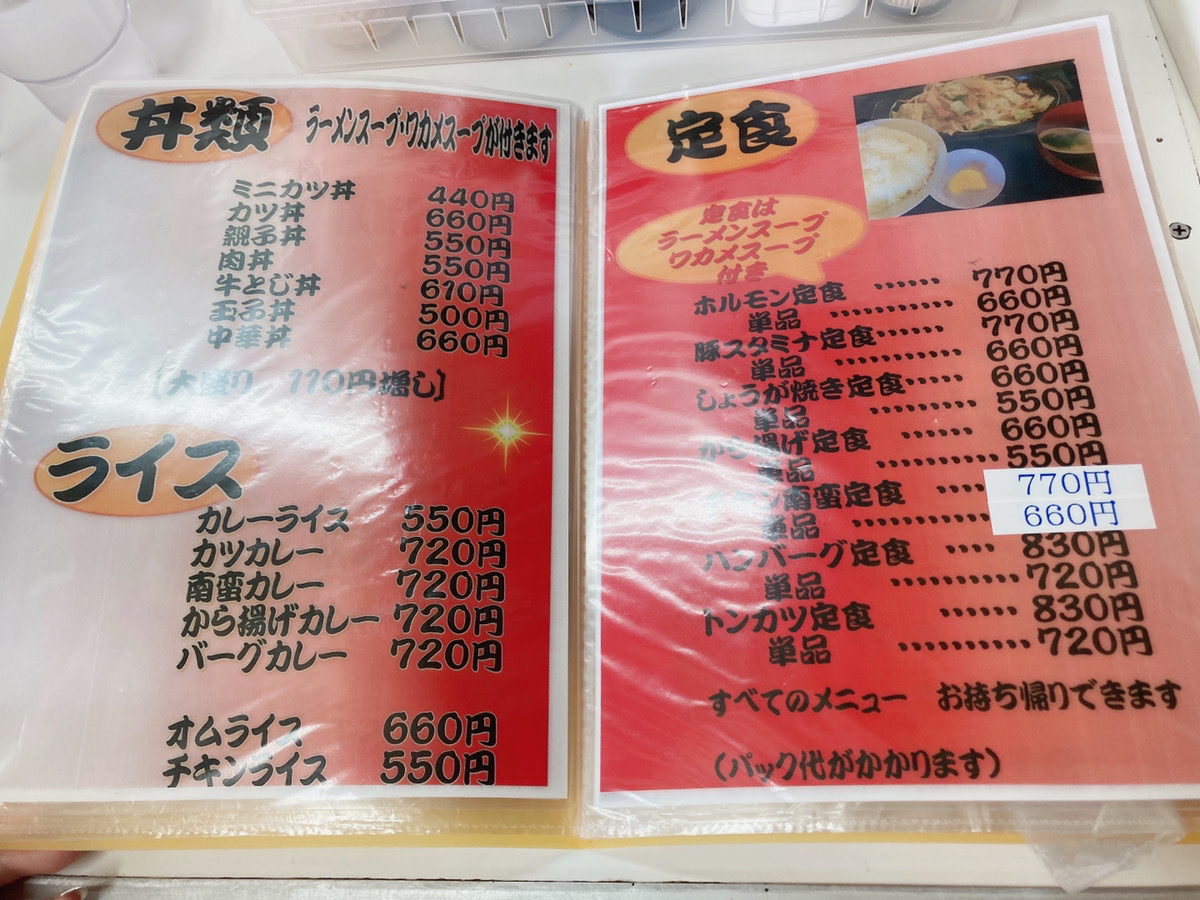 丼類 ラーメンスープ・ワカメスープが付きます
ミニカツ丼 440円
カツ丼 660円
親子丼 550円
肉丼 550円
牛とじ丼 610円
玉子丼 500円
中華丼 660円
(大盛り 110円増し)
ライス
カレーライス 550円
カツカレー 720円
南蛮カレー 720円
から揚げカレー 720円
バーグカレー 720円
オムライス 660円
チキンライス 550円
定食
定食は
ラーメンスープ
ワカメスープ
付き
ホルモン定食 …… 770円
単品 ……… 660円
豚スタミナ定食 …… 770円
単品 ……… 660円
しょうが焼き定食 …… 660円
単品 ……… 550円
から揚げ定食 …… 660円
単品 ……… 550円
南蛮定食 …… 770円
単品 ……… 660円
ハンバーグ定食 …… 830円
単品 ……… 720円
トンカツ定食 …… 830円
単品 ……… 720円
すべてのメニュー お持ち帰りできます
(パック代がかかります)